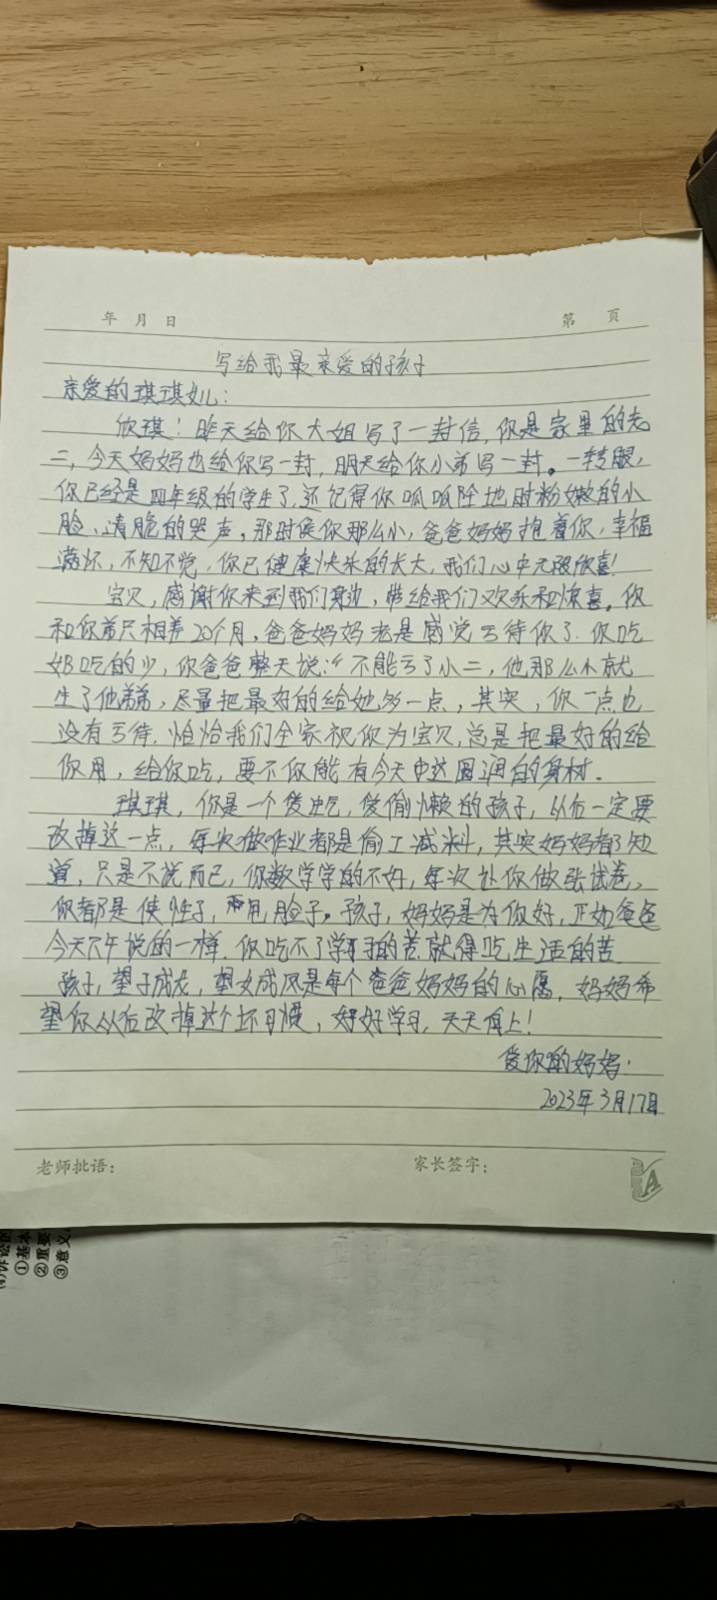 年 月 日
第 页
写给我最亲爱的孩子
亲爱的琪琪女儿：
欣琪！昨天给你大姐写了一封信，你是家里的老
二，今天妈妈也给你写一封，明天给你小弟写一封。一转眼，
你已经是四年级的学生了，还记得你呱呱坠地时粉嫩的小
脸、清脆的哭声，那时候你那么小，爸爸妈妈抱着你，幸福
满怀，不知不觉，你已健康快乐的长大，我们心中无限欣喜！
宝贝，感谢你来到我们身边，带给我们欢乐和惊喜。你
和你弟只相差20个月，爸爸妈妈老是感觉亏待你了，你吃
奶吃的少，你爸爸整天说："不能亏了小二，她那么小就
生了他弟弟，尽量把最好的给她多一点，其实，你一点也
没有亏待，恰恰我们全家视你为宝贝，总是把最好的给
你用，给你吃，要不你能有今天中这圆润的身材．
琪琪，你是一个爱生气，爱偷懒的孩子，从后一定要
改掉这一点，每次做作业都是偷工减料，其实妈妈都知
道，只是不说而已，你数学学的不好，每次让你做张试卷，
你都是使性子，甩脸子。孩子，妈妈是为你好，正如爸爸
今天下午说的一样，你吃不了学习的苦就得吃生活的苦
孩子，望子成龙，望女成凤是每个爸爸妈妈的心愿，妈妈希
望你从后改掉这个坏习惯，好好学习，天天向上！
爱你的妈妈．
2023年3月17日
老师批语：
家长签字：
①基本
②重要
③意义